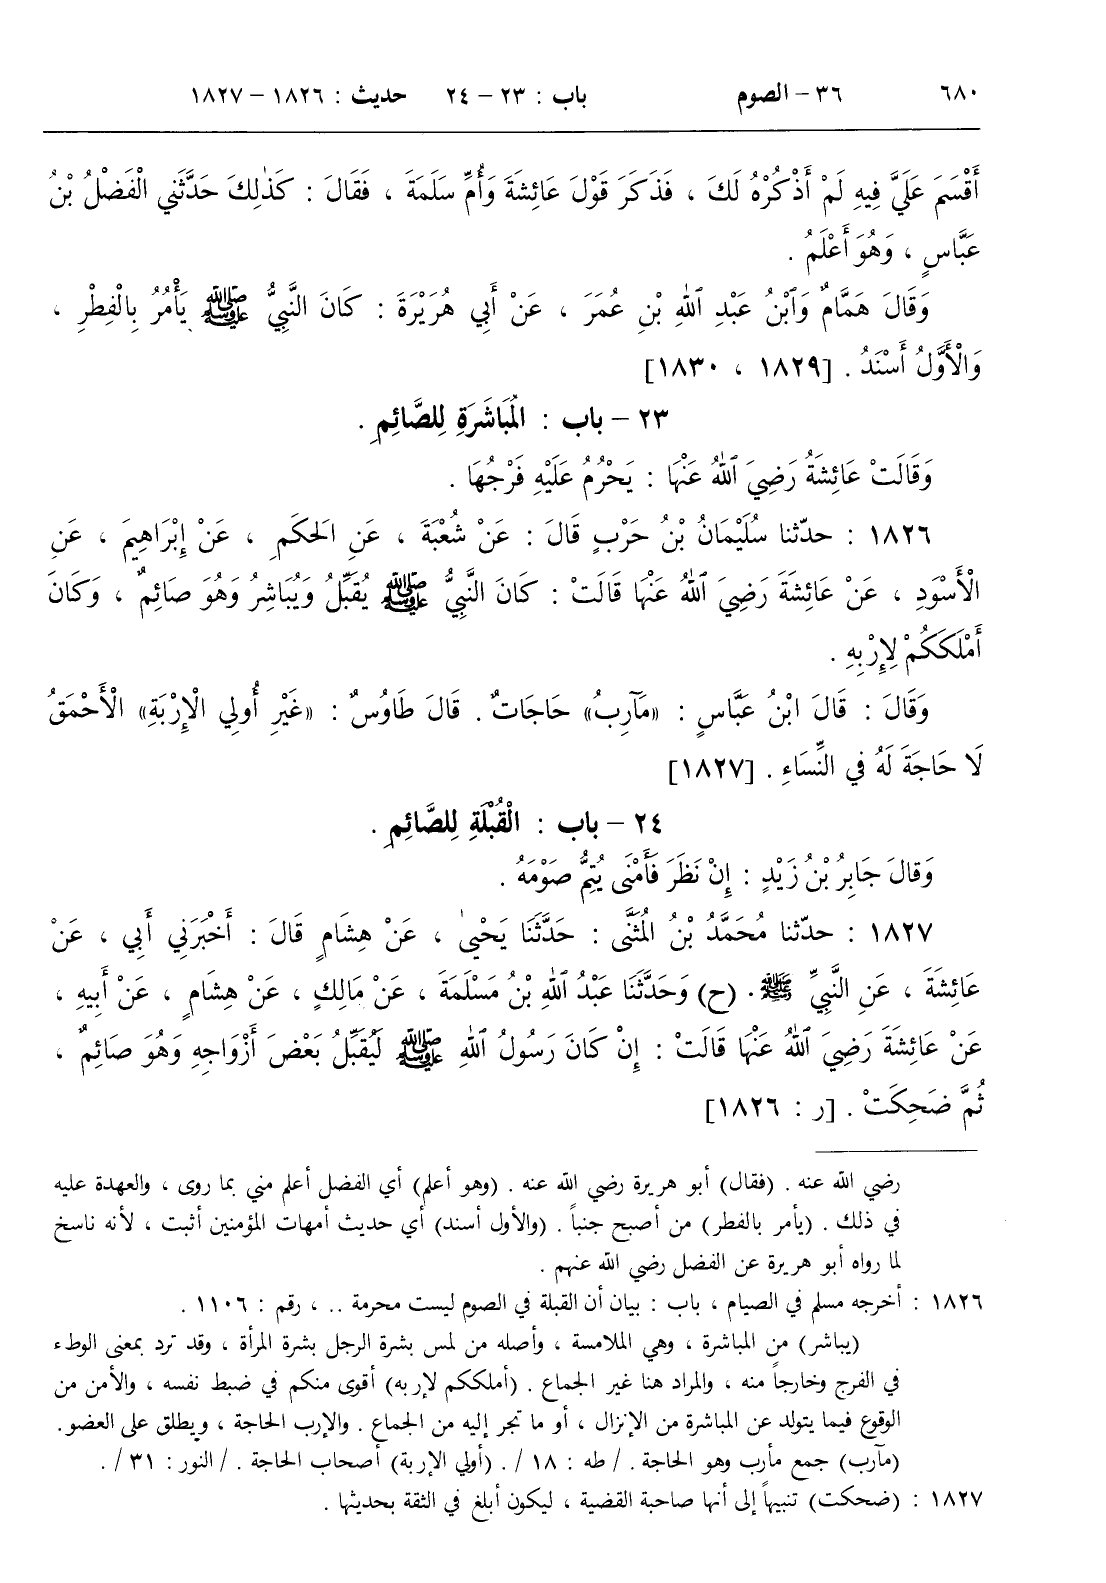 ٦٨٠ ٣٦ – الصوم باب : ٢٣ – ٢٤ حديث : ١٨٢٦ – ١٨٢٧
أَقْسَمَ عَلَيَّ فِيهِ لَمْ أَذْكُرْهُ لَكَ ، فَذَكَرَ قَوْلَ عَائِشَةَ وَأُمِّ سَلَمَةَ ، فَقَالَ : كَذٰلِكَ حَدَّثَنِي الْفَضْلُ بْنُ
عَبَّاسٍ ، وَهُوَ أَعْلَمُ .
وَقَالَ هَمَّامٌ وَٱبْنُ عَبْدِ ٱللهِ بْنِ عُمَرَ ، عَنْ أَبِي هُرَيْرَةَ : كَانَ النَّبِيُّ ﷺ يَأْمُرُ بِالْفِطْرِ ،
وَالْأَوَّلُ أَسْنَدُ . [١٨٢٩ ، ١٨٣٠]
٢٣ – باب : الْمُبَاشَرَةِ لِلصَّائِمِ .
وَقَالَتْ عَائِشَةُ رَضِيَ ٱللهُ عَنْهَا : يَحْرُمُ عَلَيْهِ فَرْجُهَا .
١٨٢٦ : حدّثنا سُلَيْمَانُ بْنُ حَرْبٍ قَالَ : عَنْ شُعْبَةَ ، عَنِ الحَكَمِ ، عَنْ إِبْرَاهِيمَ ، عَنِ
الْأَسْوَدِ ، عَنْ عَائِشَةَ رَضِيَ ٱللهُ عَنْهَا قَالَتْ : كَانَ النَّبِيُّ ﷺ يُقَبِّلُ وَيُبَاشِرُ وَهُوَ صَائِمٌ ، وَكَانَ
أَمْلَكَكُمْ لِإِرْبِهِ .
وَقَالَ : قَالَ ابْنُ عَبَّاسٍ : «مَآرِبُ» حَاجَاتٌ . قَالَ طَاوُسٌ : «غَيْرِ أُولِي الْإِرْبَةِ» الْأَحْمَقُ
لَا حَاجَةَ لَهُ فِي النِّسَاءِ . [١٨٢٧]
٢٤ – باب : الْقُبْلَةِ لِلصَّائِمِ .
وَقالَ جَابِرُ بْنُ زَيْدٍ : إِنْ نَظَرَ فَأَمْنَى يُتِمُّ صَوْمَهُ .
١٨٢٧ : حدّثنا مُحَمَّدُ بْنُ الْمُثَنَّى : حَدَّثَنَا يَحْيىٰ ، عَنْ هِشَامٍ قَالَ : أَخْبَرَنِي أَبِي ، عَنْ
عَائِشَةَ ، عَنِ النَّبِيِّ ﷺ . (ح) وَحَدَّثَنَا عَبْدُ ٱللهِ بْنُ مَسْلَمَةَ ، عَنْ مَالِكٍ ، عَنْ هِشَامٍ ، عَنْ أَبِيهِ ،
عَنْ عَائِشَةَ رَضِيَ ٱللهُ عَنْهَا قَالَتْ : إِنْ كَانَ رَسُولُ ٱللهِ ﷺ لَيُقَبِّلُ بَعْضَ أَزْوَاجِهِ وَهُوَ صَائِمٌ ،
ثُمَّ ضَحِكَتْ . [ر : ١٨٢٦]
رضي الله عنه . (فقال) أبو هريرة رضي الله عنه . (وهو أعلم) أي الفضل أعلم مني بما روى ، والعهدة عليه
في ذلك . (يأمر بالفطر) من أصبح جنباً . (والأول أسند) أي حديث أمهات المؤمنين أثبت ، لأنه ناسخ
لما رواه أبو هريرة عن الفضل رضي الله عنهم .
١٨٢٦ : أخرجه مسلم في الصيام ، باب : بيان أن القبلة في الصوم ليست محرمة .. ، رقم : ١١٠٦ .
(يباشر) من المباشرة ، وهي الملامسة ، وأصله من لمس بشرة الرجل بشرة المرأة ، وقد ترد بمعنى الوطء
في الفرج وخارجاً منه ، والمراد هنا غير الجماع . (أملككم لإربه) أقوى منكم في ضبط نفسه ، والأمن من
الوقوع فيما يتولد عن المباشرة من الإنزال ، أو ما تجر إليه من الجماع . والإرب الحاجة ، ويطلق على العضو.
(مآرب) جمع مأرب وهو الحاجة . / طه : ١٨ /. (أولي الإربة) أصحاب الحاجة . / النور : ٣١ /.
١٨٢٧ : (ضحكت) تنبيهاً إلى أنها صاحبة القضية ، ليكون أبلغ في الثقة بحديثها .